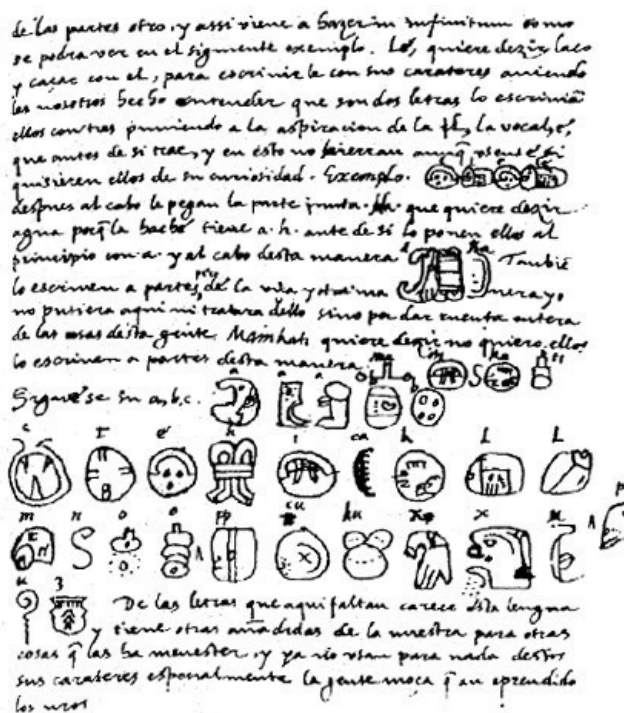 de las partes otro, y assi viene a hazer in infinitum como
se podra ver en el siguiente exemplo. Lé, quiere dezir laço
y caçar con el, para escrivirle con sus carateres aviendo
les nosotros hecho entender que son dos letras lo escrivian
ellos con tres puniendo a la aspiracion de la l, la vocal, é,
que antes de si trae, y en esto no hierran aunq̃ usense si
quisieren ellos de su curiosidad. Exemplo.
despues al cabo le pegan la parte junta. Ha. que quiere dezir
agua porq̃ la hache tiene a. h. ante de si lo ponen ellos al
principio con a. y al cabo desta manera a ha Tambiẽ
lo escriven a partes de la una y otra ma nera yo
no pusiera aqui ni tratara dello sino por dar cuenta entera
de las cosas desta gente. Mainkati quiere dezir no quiero ellos
lo escriven a partes desta manera. ma i n ka ti
Siguese su a, b, c. a a a b b
c t é h i ca k l l
m n o o pp cu ku x x u p
u z De las letras que aqui faltan carece esta lengua
y tiene otras añadidas de la nuestra para otras
cosas q̃ las ha menester, y ya no usan para nada destos
sus carateres especialmente la gente moça q̃ an aprendido
los nros